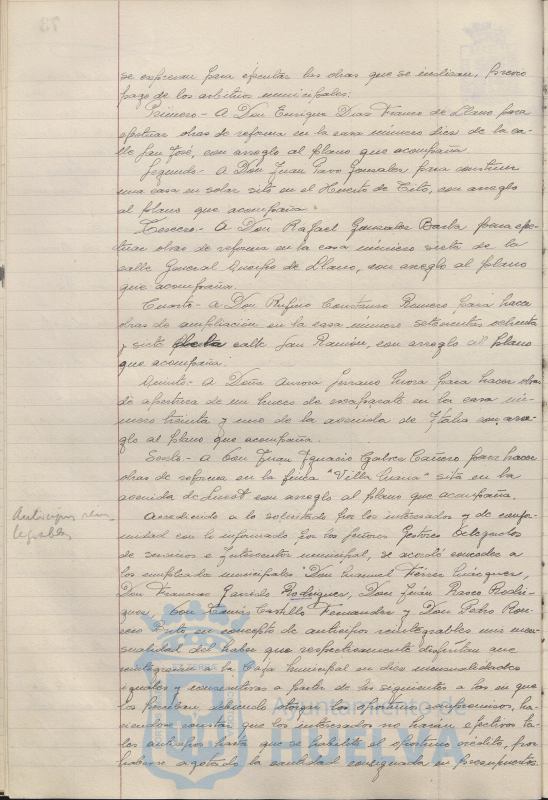 se expresan para ejecutar las obras que se indican, previo
pago de los arbitrios municipales:
Primero- A Don Enrique Díaz Franco de Llano para
efectuar obras de reforma en la casa número diez de la ca-
lle San José, con arreglo al plano que acompaña.
Segundo- A Don Juan Pavo Gonzalez para construir
una casa en solar sito en el Huerto de Tito, con arreglo
al plano que acompaña.
Tercero- A Don Rafael Gonzalez Barba para efec-
tuar obras de reforma en la casa número siete de la
calle General Queipo de Llano, con arreglo al plano
que acompaña.
Cuarto- A Don Rufino Romero para hacer
obras de ampliación en la casa número setecientos ochenta
y siete calle San Ramón, con arreglo al plano
que acompaña.
Quinto- A Doña Aurora Serrano Mora para hacer obras
de apertura de un hueco de escaparate en la casa nú-
mero treinta y uno de la avenida de Italia con arre-
glo al plano que acompaña.
Sexto- A Don Juan Ignacio Galvez Cañero para hacer
obras de reforma en la finca "Villa " sita en la
avenida de con arreglo al plano que acompaña.
Anticipos rein-
tegrables
Accediendo a lo solicitado por los interesados y de confor-
midad con lo informado por los Señores Gestores Delegados
de servicios e Interventor municipal, se acordó conceder a
los empleados municipales Don Manuel Márquez,
Don Francisco Garrido Rodríguez, Don Juan Rasco Rodrí-
guez, Don Castillo Fernandez y Don Pedro Rome-
ro en concepto de anticipos reintegrables una men-
sualidad del haber que respectivamente disfrutan que
reintegrarán a la Caja Municipal en diez mensualidades
iguales y consecutivas a partir de la siguiente a la en que
los perciban, debiendo otorgar los oportunos compromisos, ha-
ciendose constar que los interesados no harán efectivos ta-
les anticipos hasta que se habilite el oportuno crédito, por
haberse agotado la cantidad consignada en presupuestos.
Ayuntamiento de
HUELVA